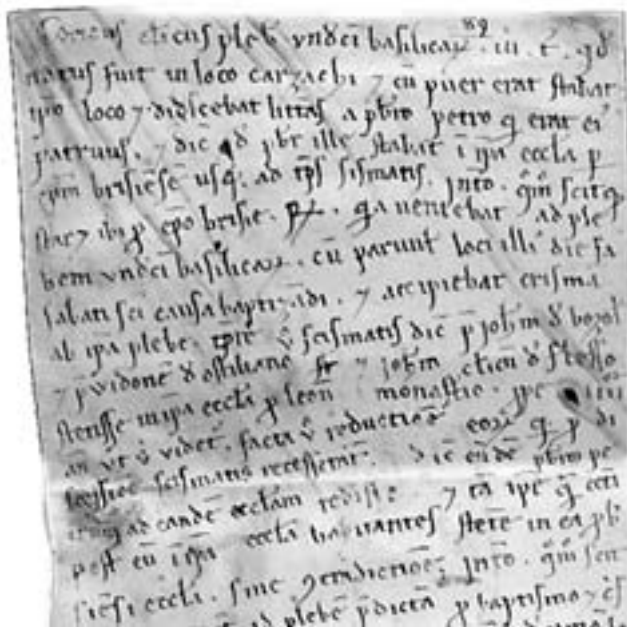 clicus pleb vndeci basilicaꝝ . iii . t .
natus fuit in loco carzachi ⁊ cū puer erat stabat
ipo loco ⁊ didicebat litt̄as a pb̄ro petro q̄ erat ei
patruus . ⁊ dic̄ pbr̄ ille stabat ī ip̄a eccl̄a p
ep̄m brisiēsē usq; ad tp̄s sismatis . Int̄o . q̄m scit q̄
star& ibi p ep̄o brisie . ꝶ . q̄a veniebat ad ple
bem vndeci basilicaꝝ . cū parunt loci illi die sa
sabati sc̄i causa baptizādi . ⁊ accipiebat crisma
ab ip̄a plebe . tp̄re v̄ scismatis dic̄ p̄ joh̄m d̄ bozol
⁊ p̄ vidonē d̄ ostiliano ⁊ joh̄m clicū d̄
stetisse in ip̄a eccl̄a p leon̄ monast̄io . p̄e iiii
an̄ vt v̄ videt̄ . facta v̄ reductiōe eoꝝ q̄ p di
scismatis recesserāt . dic̄ eūdē pb̄ro pe
ad eandē eccl̄am redisse ⁊ tā ip̄e q̄
post eū ī ip̄a eccl̄a habitantes stetē in ea p b
siēsi eccl̄i . sine ꝯtradictiōe ; Int̄o . q̄m scit
ad plebē p̄dictā p baptismo ⁊